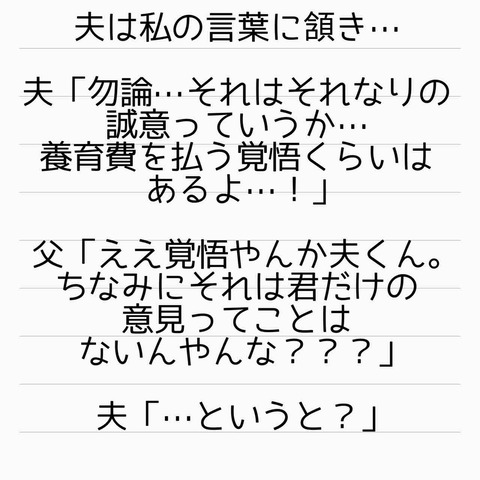 夫は私の言葉に頷き…
夫「勿論…それはそれなりの
誠意っていうか…
養育費を払う覚悟くらいは
あるよ…！」
父「ええ覚悟やんか夫くん。
ちなみにそれは君だけの
意見ってことは
ないんやんな？？？」
夫「…というと？」